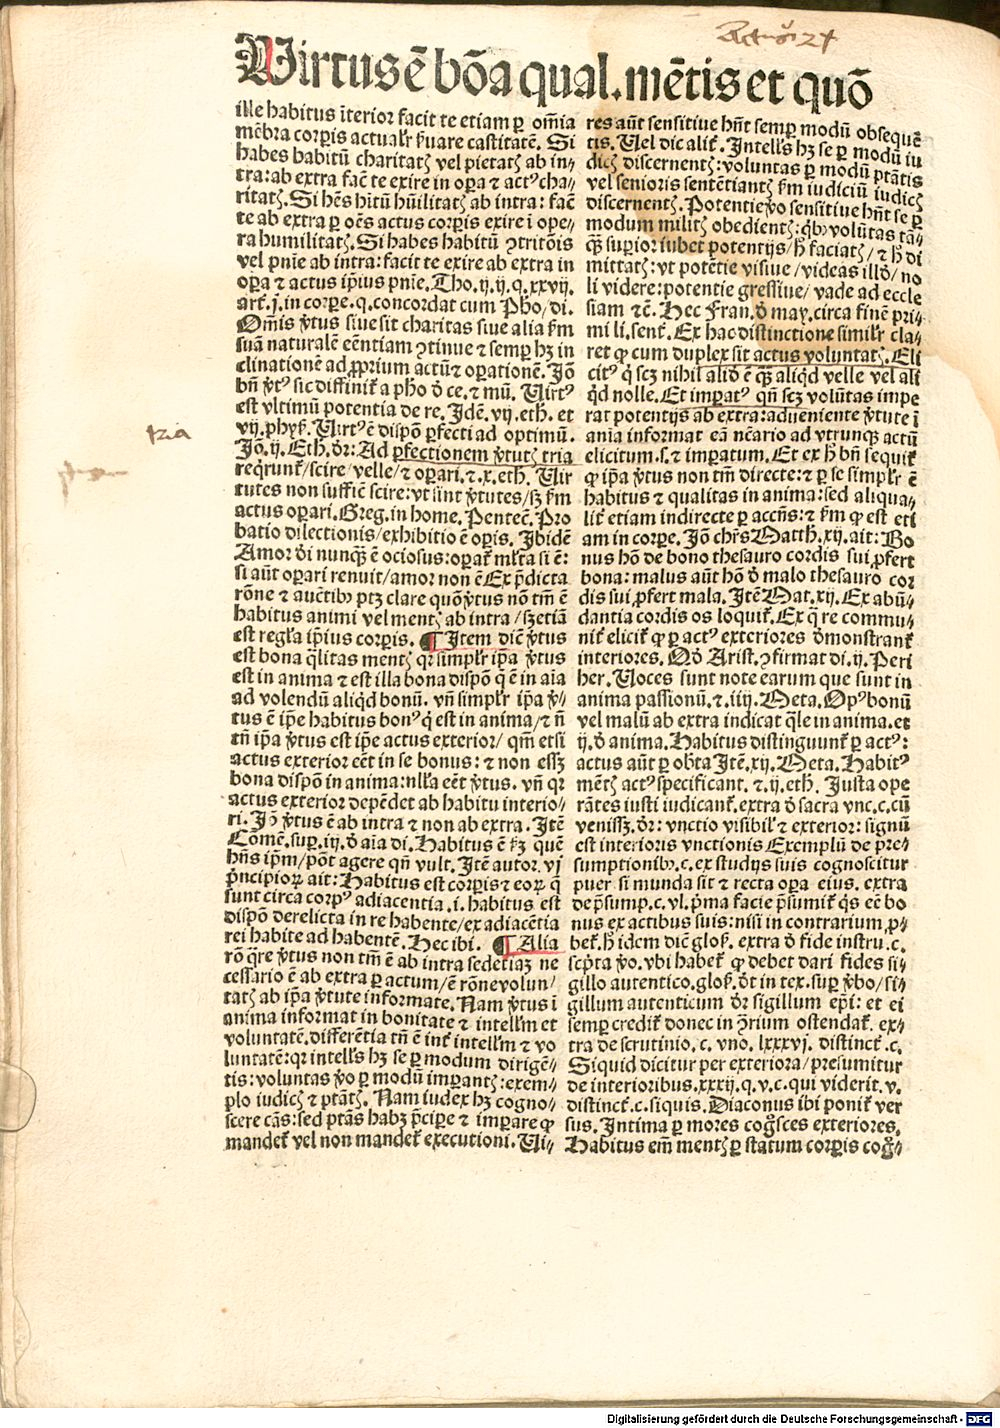 Virtus ē bōa qual. mētis et quō
ille habitus īterior facit te etiam ꝑ om̄ia
mēbra corꝑis actualr̄ ẜuare castitatē. Si
habes habitū charitatꝭ vel pietatꝭ ab in⸗
tra: ab extra facꝭ te exire in oꝑa ⁊ actꝰ cha⸗
ritatꝭ. Si hēs hītū hūilitatꝭ ab intra: facꝭ
te ab extra ꝑ oēs actus corꝑis exire ī ope⸗
ra humilitatꝭ. Si habes habitū ꝯtritōis
vel pnīe ab intra: facit te exire ab extra in
oꝑa ⁊ actus ip̄ius pnīe. Tho. ij. ij. q. xxvij.
art. j. in corpe. q. concordat cum Pho / di.
Om̄is v̓tus siue sit charitas siue alia ẜm
suā naturalē eēntiam ꝯtinue ⁊ semꝑ hꝫ in
clinationē ad ꝓprium actū ⁊ oꝑationē. Jō
bn̄ v̓tꝰ sic diffinit᷑ a pho d̓ ce. ⁊ mū. Uirtꝰ
est vltimū potentia de re. Jdē. vij. eth. et
vij. phyẜ. Uirtꝰ ē dispō ꝑfecti ad optimū.
Jō. ij. Eth. dr̄: Ad ꝑfectionem v̓tutꝭ tria
req̇runt᷑ / scire / velle / ⁊ oꝑari. ⁊. x. eth. Uir
tutes non suffic̄ scire: vt sint v̓tutes / sꝫ ẜm
actus oꝑari. Greg. in home. Pentec̄. Pro
batio dilectionis / exhibitio ē oꝑis. Jbidē
Amor dī nunqꝫ ē ociosus: oꝑat᷑ ml̓ta si ē:
si aūt oꝑari renuit / amor non ē Ex p̄dicta
rōne ⁊ auctibꝰ ptꝫ clare quō v̓tus nō tm̄ ē
habitus animi vel mentꝭ ab intra / sꝫ etiā
est regl̓a ip̄ius corꝑis. ¶ Jtem dic̄ v̓tus
est bona q̄litas mentꝭ qr̄ simpl̓r ip̄a v̓tus
est in anima ⁊ est illa bona dispō q̄ ē in aīa
ad volendū aliqd̓ bonū. vn̄ simpl̓r ip̄a v̓⸗
tus ē ip̄e habitus bonꝰ q̇ est in anima / ⁊ n̄
tn̄ ip̄a v̓tus est ip̄e actus exterior / qm̄ etsi
actus exterior eēt in se bonus: ⁊ non essꝫ
bona dispō in anima: nl̓la eēt v̓tus. vn̄ qr̄
actus exterior depēdet ab habitu interio⸗
ri. Jō v̓tus ē ab intra ⁊ non ab extra. Jtē
Cōmē. suꝑ. iij. d̓ aīa di. Habitus ē ẜꝫ quē
hn̄s ip̄m / pōt agere qn̄ vult. Jtē autor. vj
p̓ncipioꝝ ait: Habitus est corꝑis ⁊ eoꝝ q̄
sunt circa corpꝰ adiacentia. i. habitus est
dispō derelicta in re habente / ex adiacētia
rei habite ad habentē. Hec ibi. ¶ Alia
rō q̄re v̓tus non tm̄ ē ab intra sed etiaꝫ ne
cessario ē ab extra ꝑ actum / ē rōne volun⸗
tatꝭ ab ip̄a v̓tute informate. Nam v̓tus ī
anima informat in bonitate ⁊ intell̓m et
voluntatē. differētia tn̄ ē int᷑ intell̓m ⁊ vo
luntatē: qr̄ intell̓s hꝫ se ꝑ modum dirigē⸗
tis: voluntas v̓o ꝑ modū imꝑantꝭ: exem⸗
plo iudicꝭ ⁊ ptāꝭ. Nam iudex hꝫ cogno⸗
scere cās: sed ptās habꝫ p̓cipe ⁊ imꝑare ꝙ
mandet᷑ vel non mandet᷑ executioni. Ui⸗
res aūt sensitiue hn̄t semꝑ modū obseque̅
tis. Uel dic alit᷑. Jntell̓s hꝫ se ꝑ modū iu
dicꝭ discernentꝭ: voluntas ꝑ modū ptātis
vel senioris sentētiantꝭ ẜm iudiciū iudicꝭ
discernentꝭ. Potentie v̓o sensitiue hn̄t se ꝑ
modum militꝭ obedientꝭ: qb̓ volūtas tā⸗
qꝫ suꝑior iubet potentijs / hͦ faciatꝭ / ⁊ hͦ di
mittatꝭ: vt potētie visiue / videas illd̓ / no
li videre: potentie gressiue / vade ad eccle
siam ⁊ē. Hec Fran. d̓ may. circa finē pri
mi li. sent᷑. Ex hac distinctione similr̄ cla⸗
ret ꝙ cum duplex sit actus voluntatꝭ. Eli
citꝰ q̇ scꝫ nihil aliō ē qꝫ aliqd̓ velle vel ali
qd̓ nolle. Et imꝑatꝰ qn̄ scꝫ volūtas impe
rat potentijs ab extra: adueniente v̓tute ī
anīa informat eā nc̄ario ad vtrunqꝫ actū
elicitum. s. ⁊ imꝑatum. Et ex hͦ bn̄ sequit᷑
ꝙ ip̄a v̓tus non tm̄ directe: ⁊ ꝑ se simpl̓r ē
habitus ⁊ qualitas in anima: sed aliqua⸗
lit᷑ etiam indirecte ꝑ accn̄s: ⁊ ẜm ꝙ est eti
am in corpe. Jō chr̄s Matth. xij. ait: Bo
nus hō de bono thesauro cordis sui ꝓfert
bona: malus aūt hō d̓ malo thesauro cor
dis sui ꝓfert mala. Jtē Mat. xij. Ex abū⸗
dantia cordis os loquit᷑. Ex q̇ re commu⸗
nit᷑ elicit᷑ ꝙ ꝑ actꝰ exteriores d̓monstrant᷑
interiores. Qd̓ Arist. ꝯfirmat di. ij. Peri
her. Uoces sunt note earum que sunt in
anima passionū. ⁊. iiij. Meta. Opꝰ bonū
vel malū ab extra indicat q̄le in anima. et
ij. d̓ anima. Habitus distinguunt᷑ ꝑ actꝰ:
actus aūt ꝑ obta Jtē. xij. Meta. Habitꝰ
mētꝭ actꝰ specificant. ⁊. ij. eth. Justa ope
rātes iusti iudicant᷑. extra d̓ sacra vnc. c. cū
venissꝫ. dr̄: vnctio visibil̓ ⁊ exterior: signū
est interioris vnctionis Exemplū de pre⸗
sumptionibꝰ. c. ex studijs suis cognoscitur
puer si munda sit ⁊ recta oꝑa eius. extra
de p̄sump. c. vl̓. pma facie p̄sumit᷑ q̇s eē bo
nus ex actibus suis: nisi in contrarium ꝓ⸗
bet᷑. hͦ idem dic̄ gloẜ. extra d̓ fide instru. c.
scp̄ta v̓o. vbi habet᷑ ꝙ debet dari fides si⸗
gillo autentico. gloẜ. d̓t in tex. suꝑ v̓bo / si⸗
gillum autenticum dr̄ sigillum ep̄i: et ei
semꝑ credit᷑ donec in ꝯ̄rium ostendat᷑. ex⸗
tra de scrutinio. c. vno. lxxxvj. distinct᷑. c.
Siquid dicitur per exteriora / presumitur
de interioribus. xxxij. q. v. c. qui viderit. v.
distinct᷑. c. siquis. Diaconus ibi ponit᷑ ver
sus. Jntima ꝑ mores cogͦsces exteriores.
Habitus em̄ mentꝭ ꝑ statum corꝑis cogͦ⸗
tria
Digitalisierung gefördert durch die Deutsche Forschungsgemeinschaft - DFG